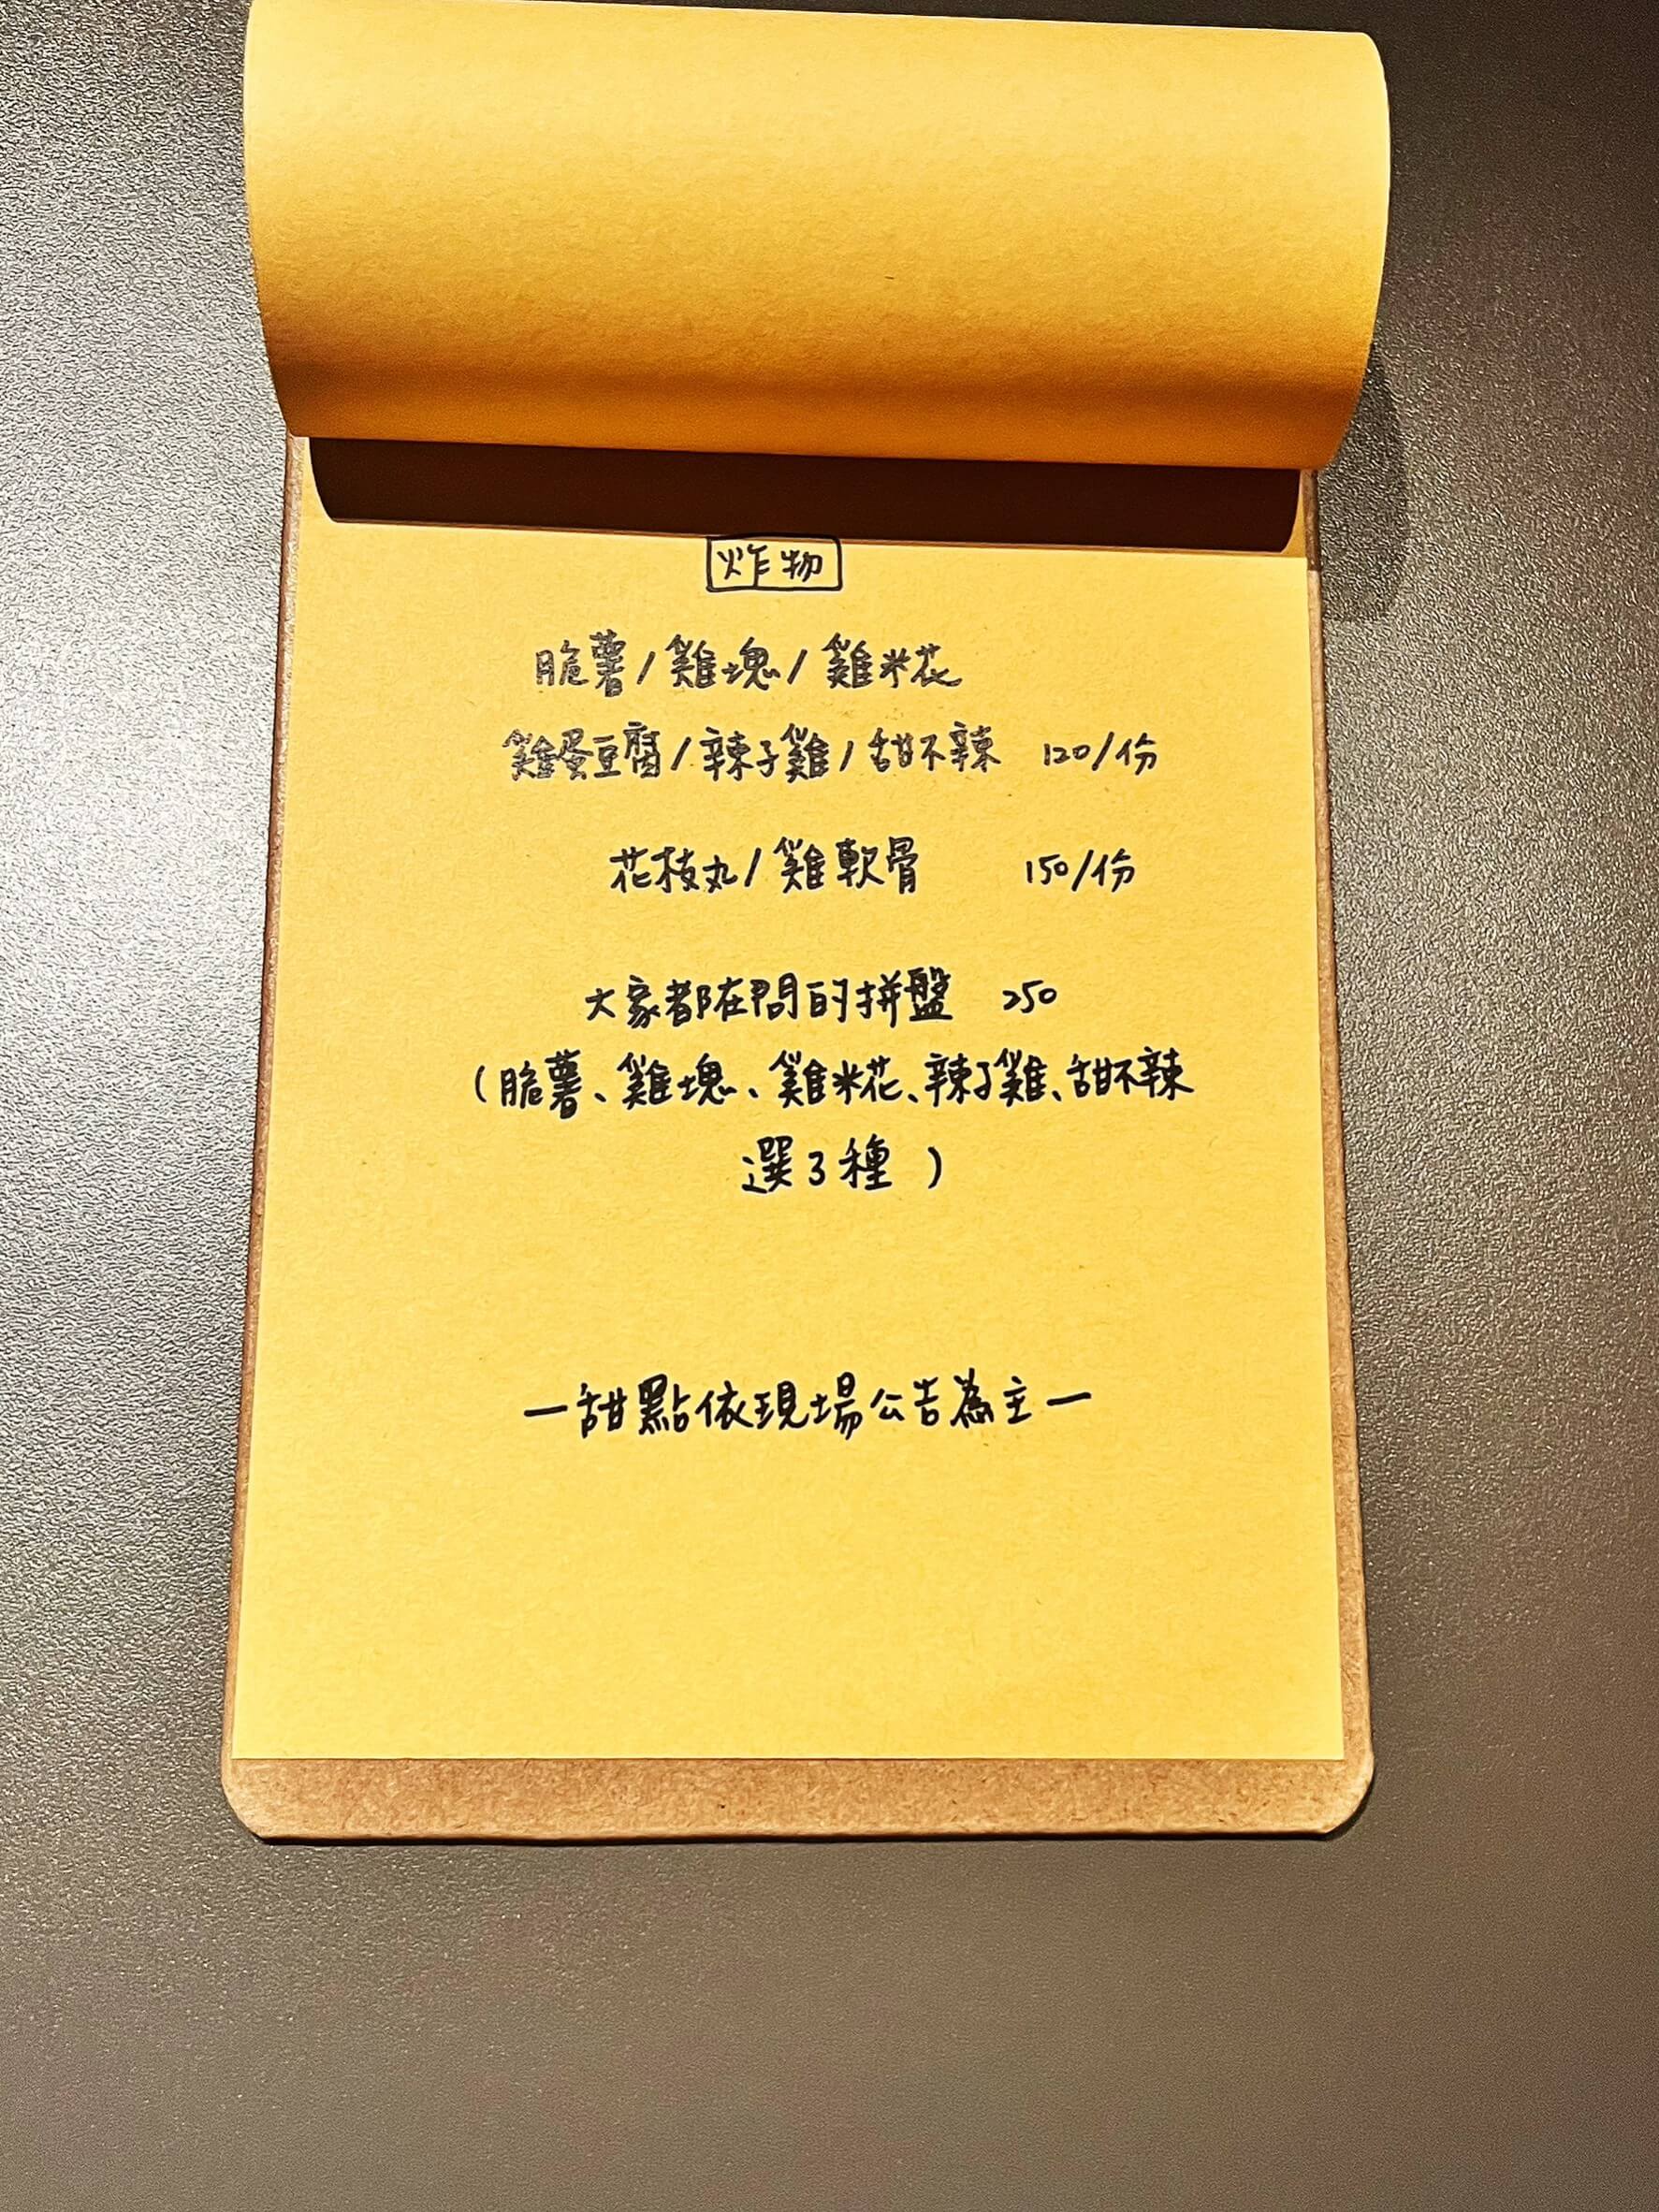 炸物
脆薯/雞塊/雞米花
雞蛋豆腐/辣子雞/甜不辣 120/份
花枝丸/雞軟骨 150/份
大家都在問的拼盤 250
(脆薯、雞塊、雞米花、辣子雞、甜不辣
選3種)
—甜點依現場公告為主—